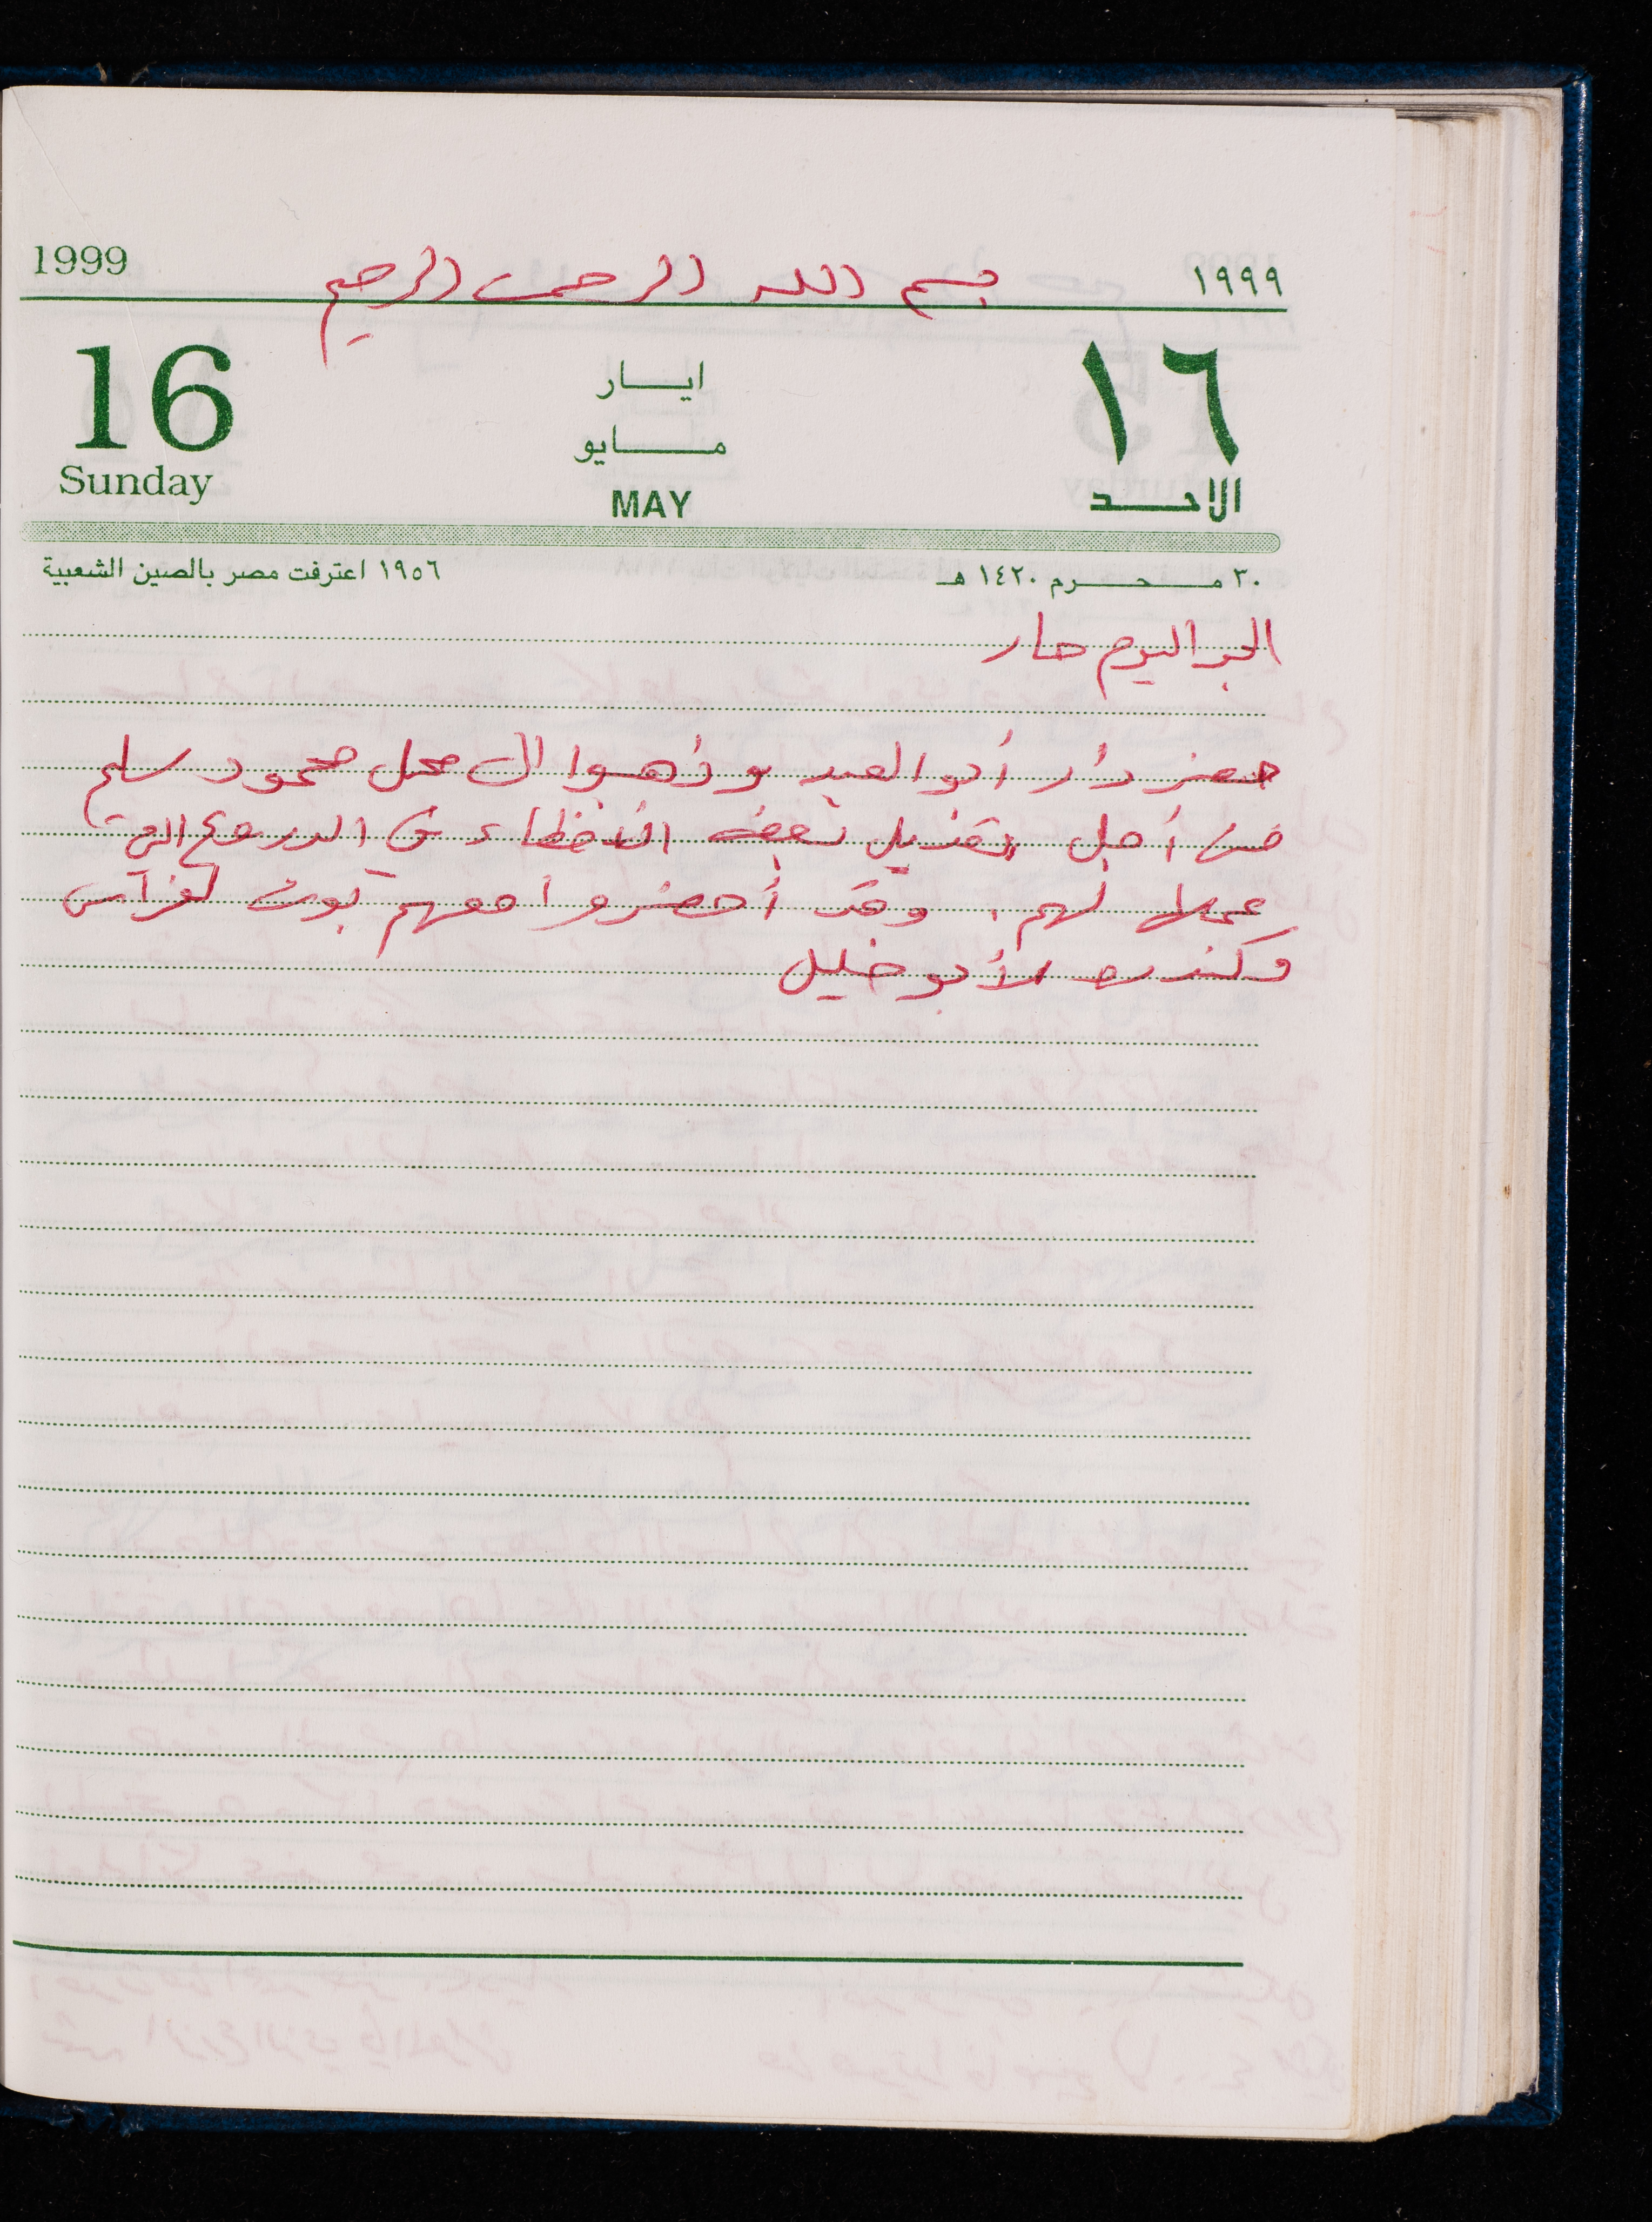 1999 بسم الله الرحمن الرحيم ١٩٩٩
16 ايار ١٦
مايو
Sunday MAY الاحد
٣٠ محرم ١٤٢٠ هـ ١٩٥٦ اعترفت مصر بالصين الشعبية
الجو اليوم حار
حضر دار أبو العبد وذهبوا الى محل محمود سلم
من أجل تعديل بعض الاخطاء في الدروع التي
عملها لهم. وقد أحضروا معهم بوت لفراس
وكندره لأبو خليل